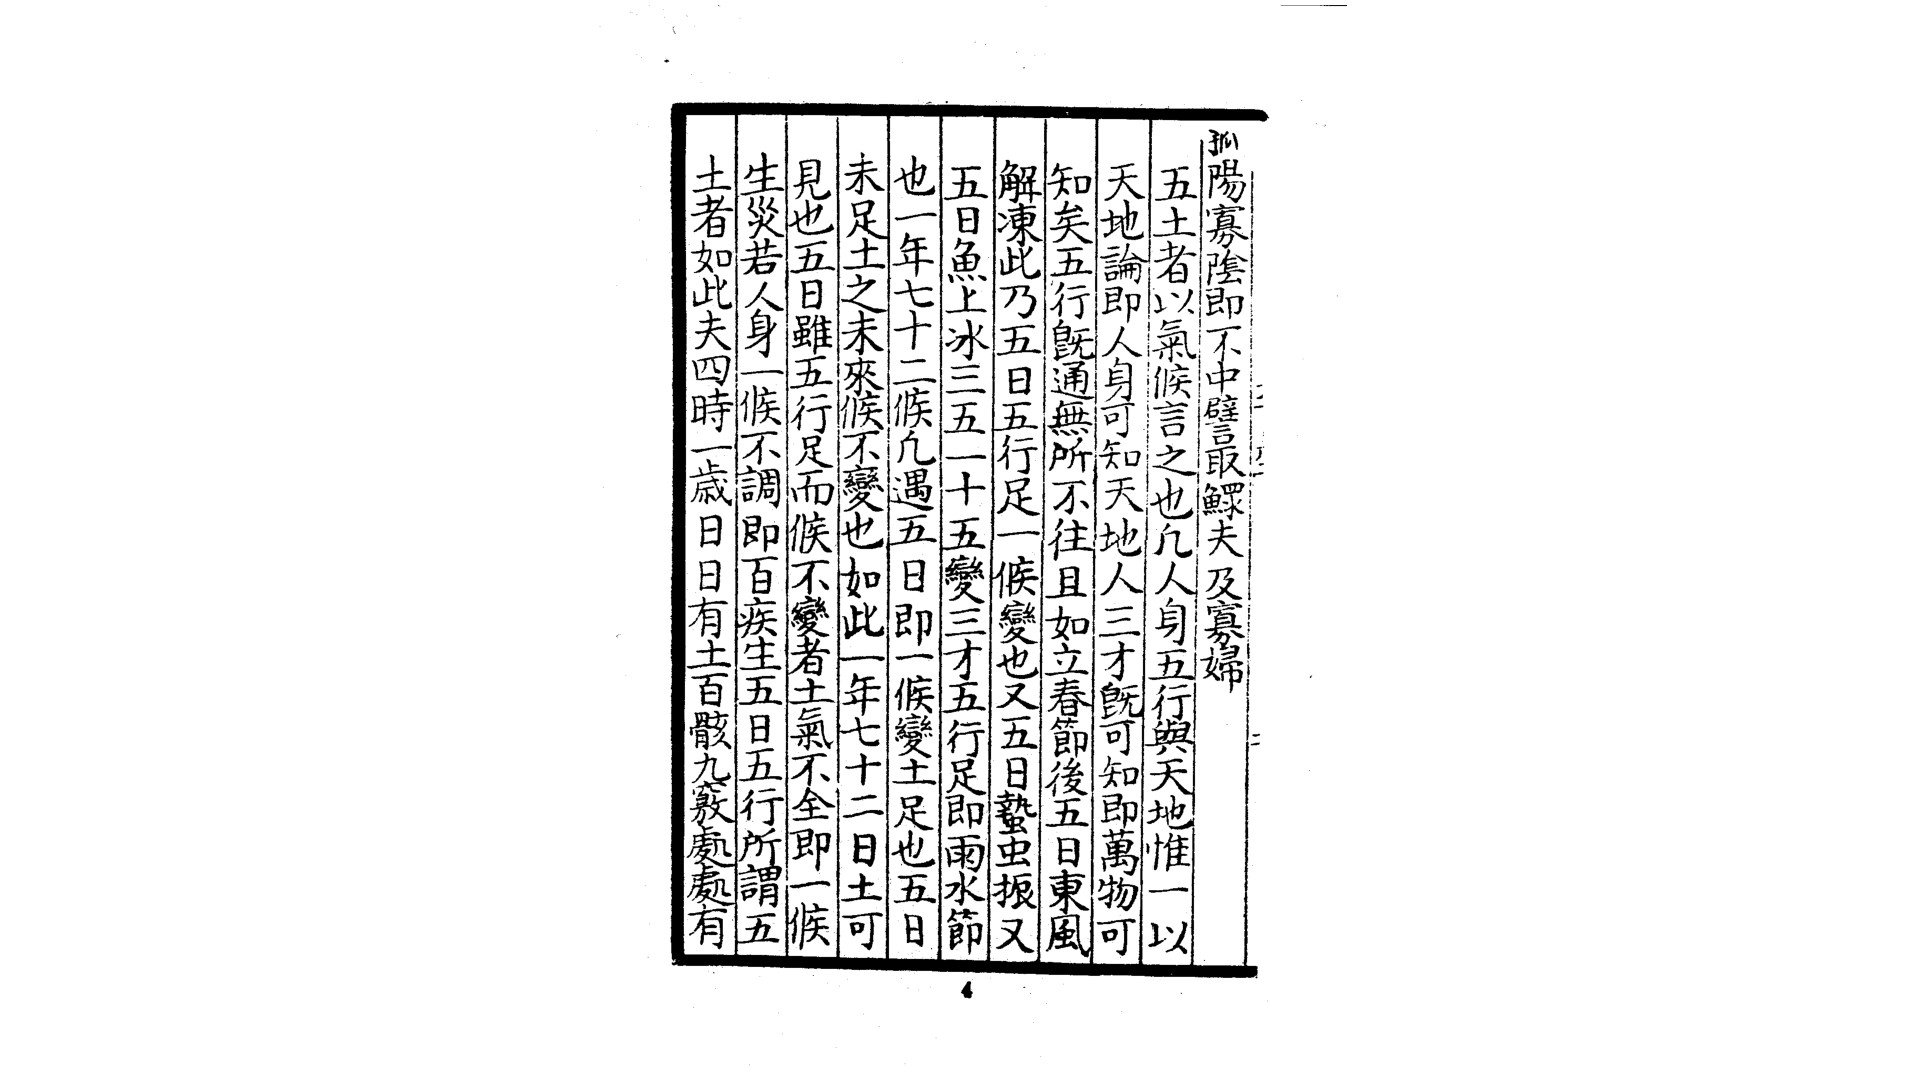 孤陽寡陰即不中譬取鰥夫及寡婦
五土者以氣候言之也凢人身五行與天地惟一以
天地論即人身可知天地人三才旣可知即萬物可
知矣五行旣通無所不往且如立春節後五日東風
解凍此乃五日五行足一候變也又五日蟄虫振又
五日魚上冰三五一十五變三才五行足即雨水節
也一年七十二候凢遇五日即一候變土足也五日
未足土之未來候不變也如此一年七十二日土可
見也五日雖五行足而候不變者土氣不全即一候
生災若人身一候不調即百疾生五日五行所謂五
土者如此夫四時一歲日日有土百骸九竅處處有
4